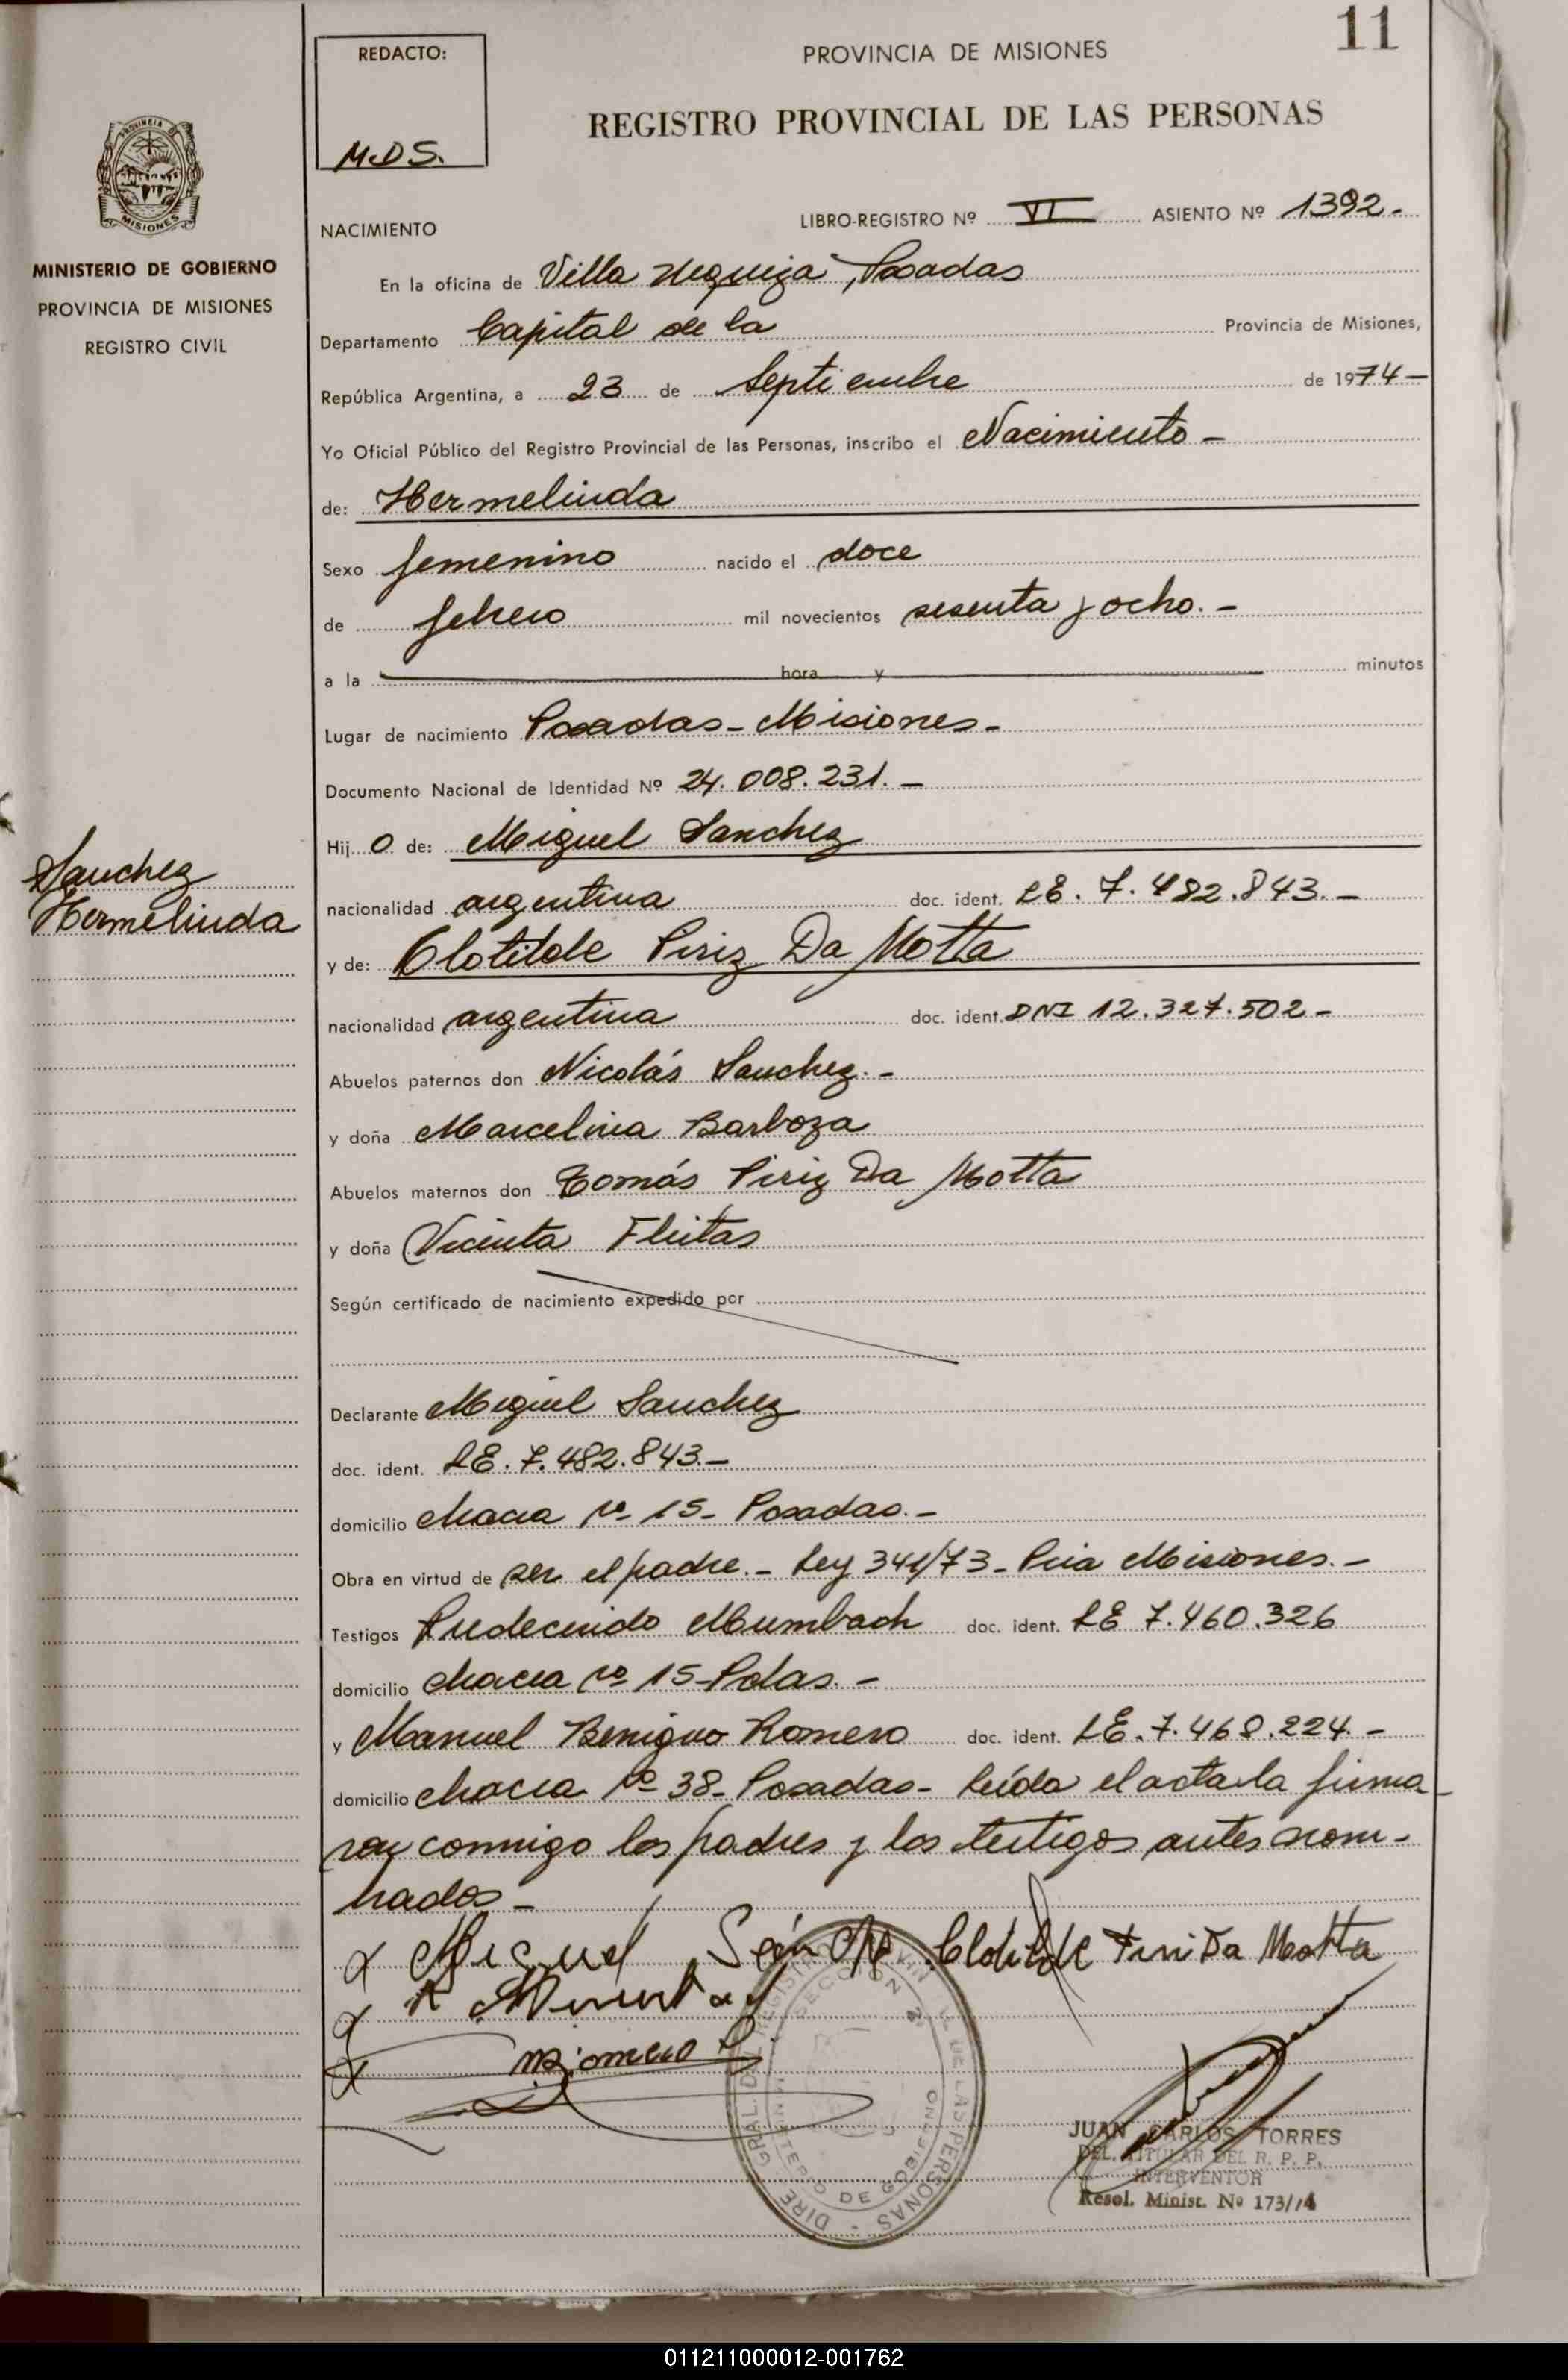 11
REDACTO:
M.D.S.
PROVINCIA DE MISIONES
REGISTRO PROVINCIAL DE LAS PERSONAS
PROVINCIA DE
MISIONES
MINISTERIO DE GOBIERNO
PROVINCIA DE MISIONES
REGISTRO CIVIL
NACIMIENTO
LIBRO-REGISTRO Nº VI ASIENTO Nº 1392.-
En la oficina de Villa Urquiza, Posadas
Departamento Capital de la Provincia de Misiones,
República Argentina, a 23 de Septiembre de 1974-
Yo Oficial Público del Registro Provincial de las Personas, inscribo el Nacimiento -
de: Hermelinda
Sexo femenino nacido el doce
de febrero mil novecientos sesenta y ocho.-
a la hora y minutos
Lugar de nacimiento Posadas - Misiones-
Documento Nacional de Identidad Nº 24.008.231.-
Hij o de: Miguel Sanchez
Sanchez
Hermelinda
nacionalidad argentina doc. ident. LE. 7.482.843.-
y de: Clotilde Piriz Da Motta
nacionalidad argentina doc. ident. DNI 12.327.502-
Abuelos paternos don Nicolás Sanchez.-
y doña Marcelina Barboza
Abuelos maternos don Tomás Piriz Da Motta
y doña Vicenta Fleitas
Según certificado de nacimiento expedido por
Declarante Miguel Sanchez
doc. ident. LE. 7.482.843.-
domicilio chacra nº 15- Posadas.-
Obra en virtud de ser el padre.- Ley 341/73- Pcia Misiones.-
Testigos Mumbach doc. ident. LE 7.460.326
domicilio chacra nº 15-Pdas.-
y Manuel Benigno Romero doc. ident. LE. 7.468.224.-
domicilio chacra nº 38- Posadas- Leída el acta la firma-
ron conmigo los padres y los testigos antes nom-
brados-
Miguel Clotilde Da Motta
JUAN CARLOS TORRES
DEL. TITULAR DEL R. P. P.
INTERVENTOR
Resol. Minist. Nº 173/74
011211000012-001762